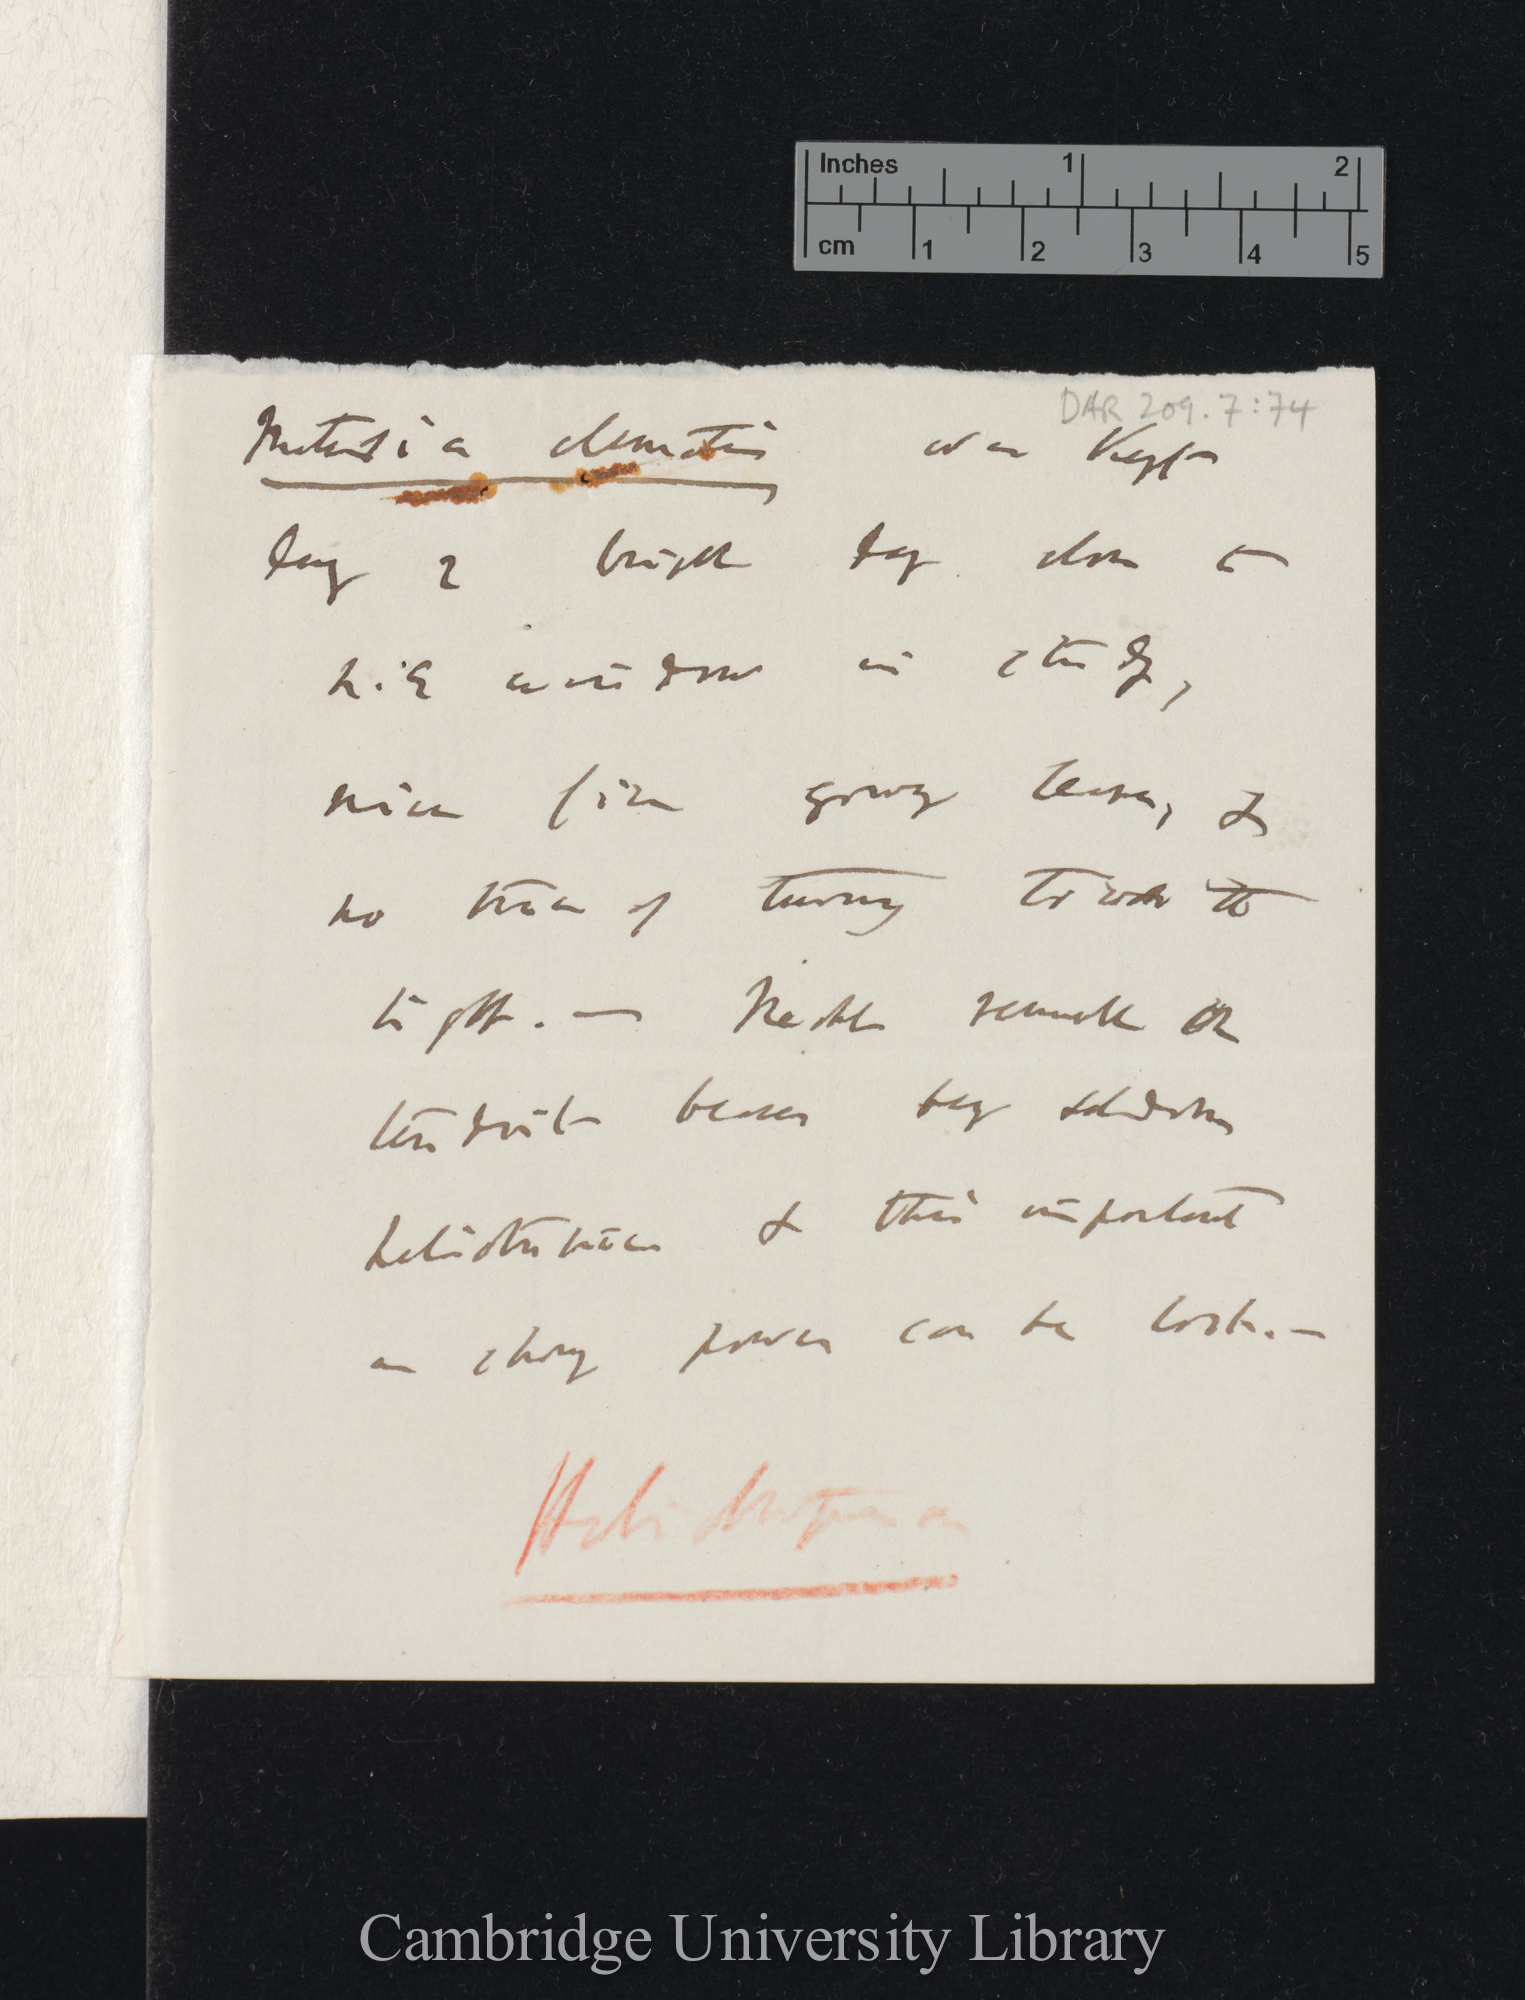 Inches 1 2
cm 1 2 3 4 5
DAR 209.7:74
Mutisia clematis was kept
long 2 bright day close to
N.E window in study,
nice fine young leaves, &
no trace of turning towards the
light. — remark on
tendrils-bearers being seldom
heliotropic & this important
a strong power can be lost. —
Heliotropism
Cambridge University Library